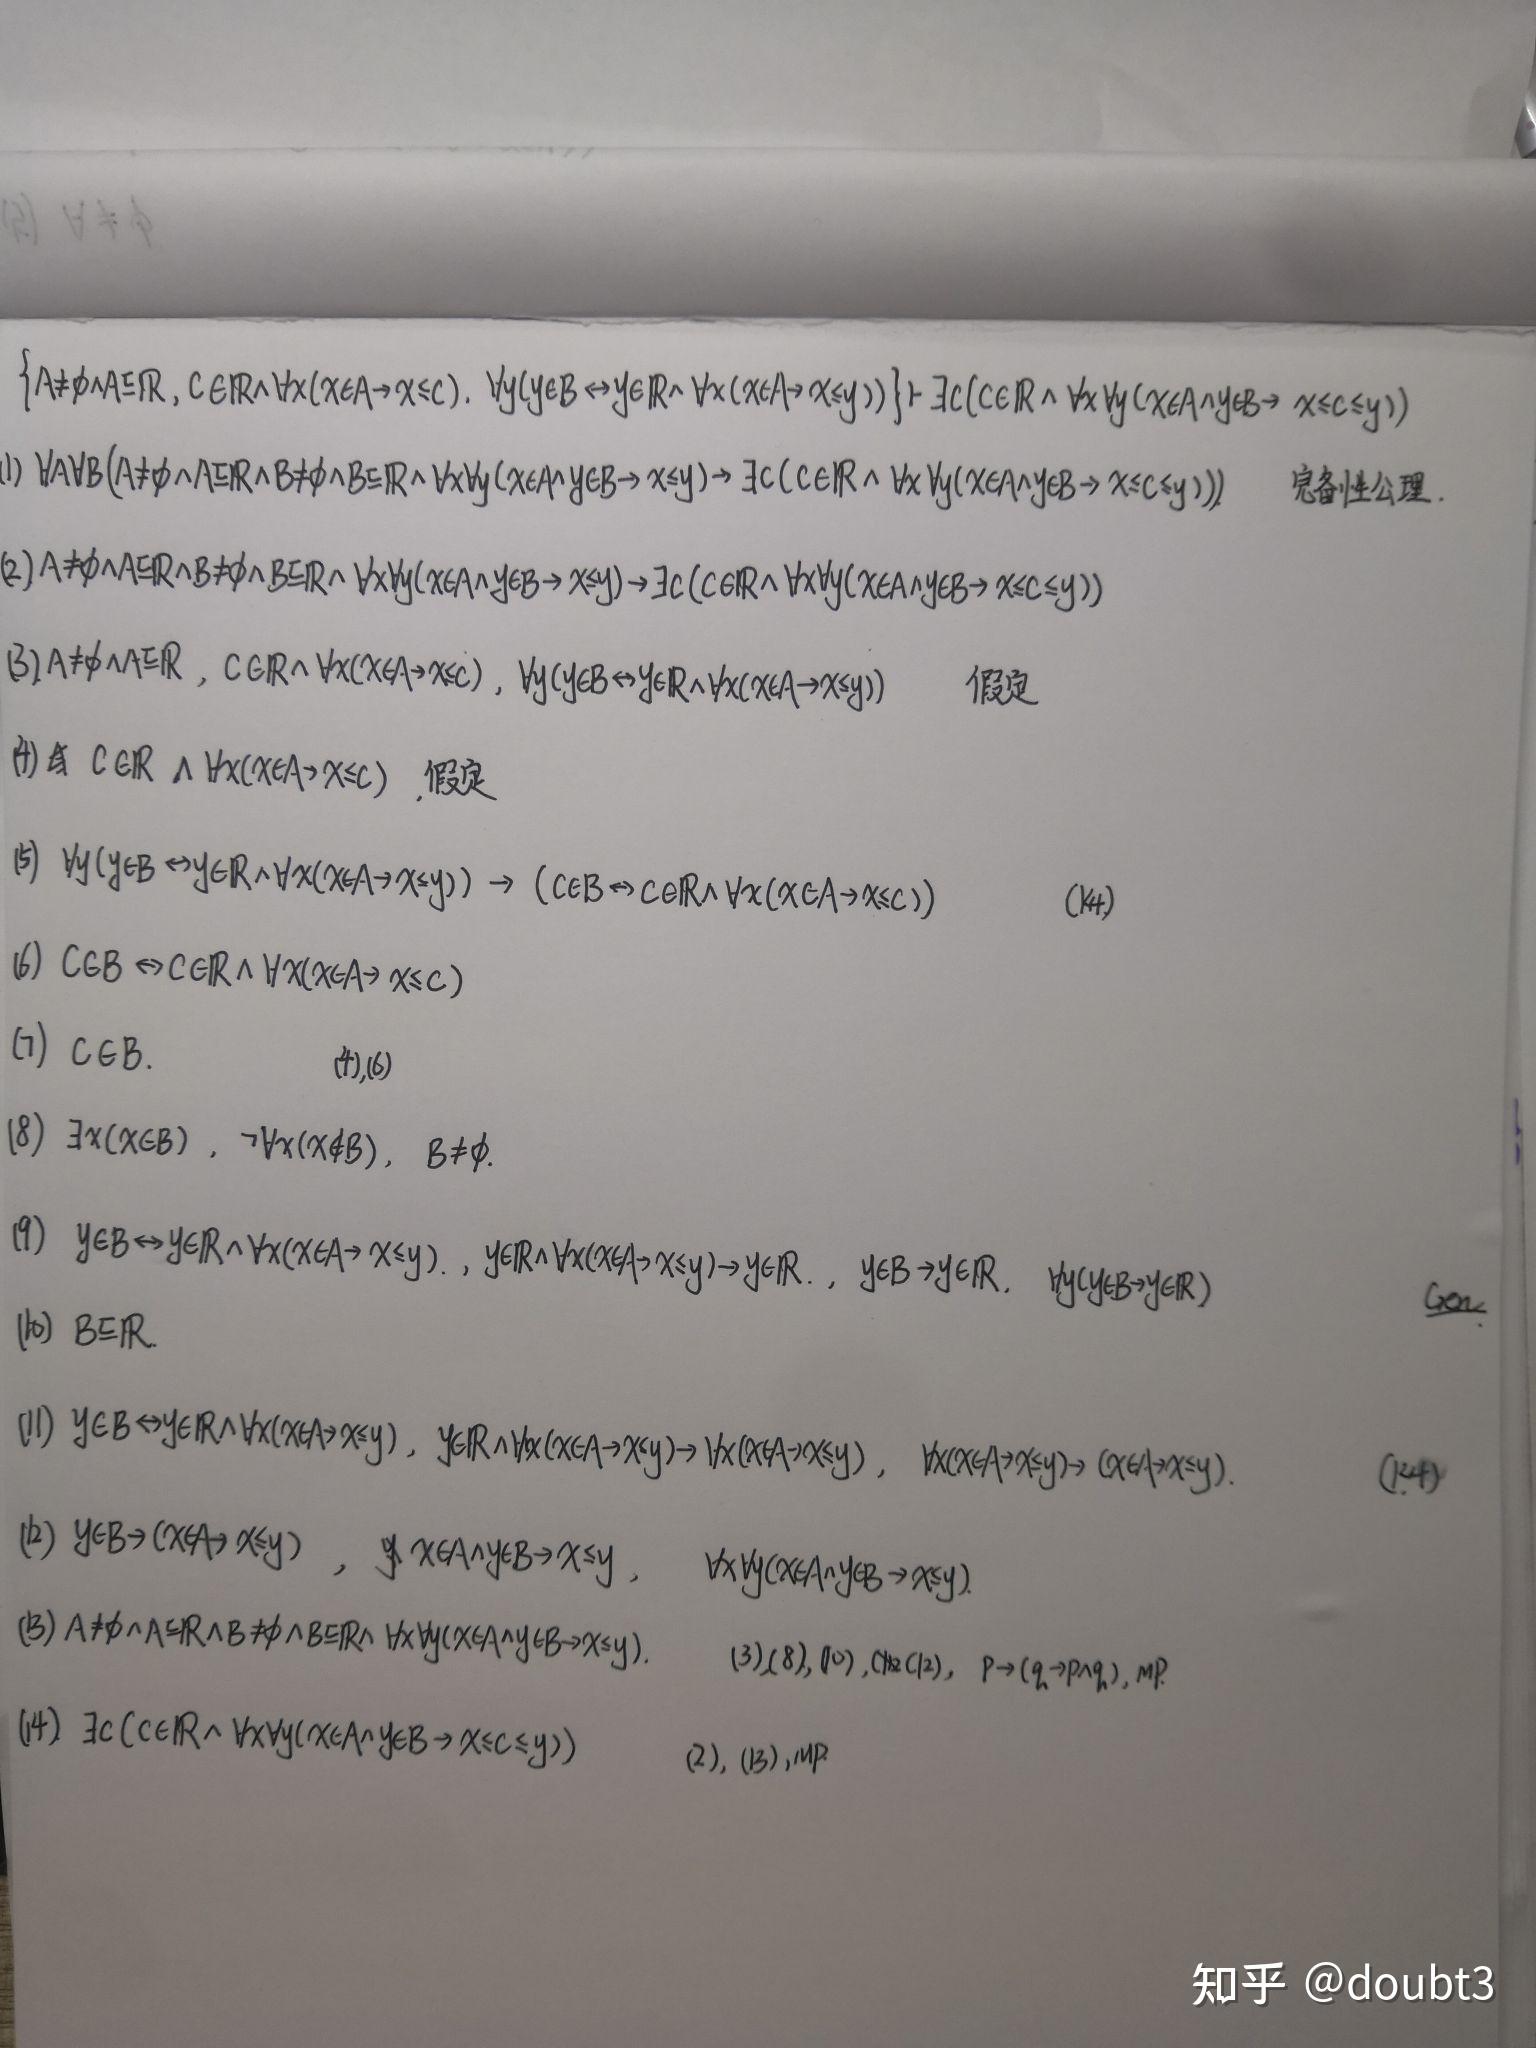 {A≠∅∧A⊆ℝ, C∈ℝ∧∀x(x∈A→x≤c). ∀y(y∈B↔y∈ℝ∧∀x(x∈A→x≤y))}⊢∃c(c∈ℝ∧∀x∀y(x∈A∧y∈B→x≤c≤y))
(1) ∀A∀B(A≠∅∧A⊆ℝ∧B≠∅∧B⊆ℝ∧∀x∀y(x∈A∧y∈B→x≤y)→∃c(c∈ℝ∧∀x∀y(x∈A∧y∈B→x≤c≤y))) 完备性公理.
(2) A≠∅∧A⊆ℝ∧B≠∅∧B⊆ℝ∧∀x∀y(x∈A∧y∈B→x≤y)→∃c(c∈ℝ∧∀x∀y(x∈A∧y∈B→x≤c≤y))
(3) A≠∅∧A⊆ℝ, C∈ℝ∧∀x(x∈A→x≤c), ∀y(y∈B↔y∈ℝ∧∀x(x∈A→x≤y)) 假定
(4) C∈ℝ∧∀x(x∈A→x≤c), 假定
(5) ∀y(y∈B↔y∈ℝ∧∀x(x∈A→x≤y))→(C∈B↔C∈ℝ∧∀x(x∈A→x≤c)) (K4)
(6) C∈B↔C∈ℝ∧∀x(x∈A→x≤c)
(7) C∈B. (4),(6)
(8) ∃x(x∈B), ¬∀x(x∉B), B≠∅.
(9) y∈B↔y∈ℝ∧∀x(x∈A→x≤y)., y∈ℝ∧∀x(x∈A→x≤y)→y∈ℝ., y∈B→y∈ℝ. ∀y(y∈B→y∈ℝ) Gen.
(10) B⊆ℝ.
(11) y∈B↔y∈ℝ∧∀x(x∈A→x≤y), y∈ℝ∧∀x(x∈A→x≤y)→∀x(x∈A→x≤y), ∀x(x∈A→x≤y)→(x∈A→x≤y). (K4)
(12) y∈B→(x∈A→x≤y), x∈A∧y∈B→x≤y, ∀x∀y(x∈A∧y∈B→x≤y).
(13) A≠∅∧A⊆ℝ∧B≠∅∧B⊆ℝ∧∀x∀y(x∈A∧y∈B→x≤y). (3),(8),(10),(12), p→(q→p∧q), MP.
(14) ∃c(c∈ℝ∧∀x∀y(x∈A∧y∈B→x≤c≤y)) (2), (13), MP.
知乎 @doubt3